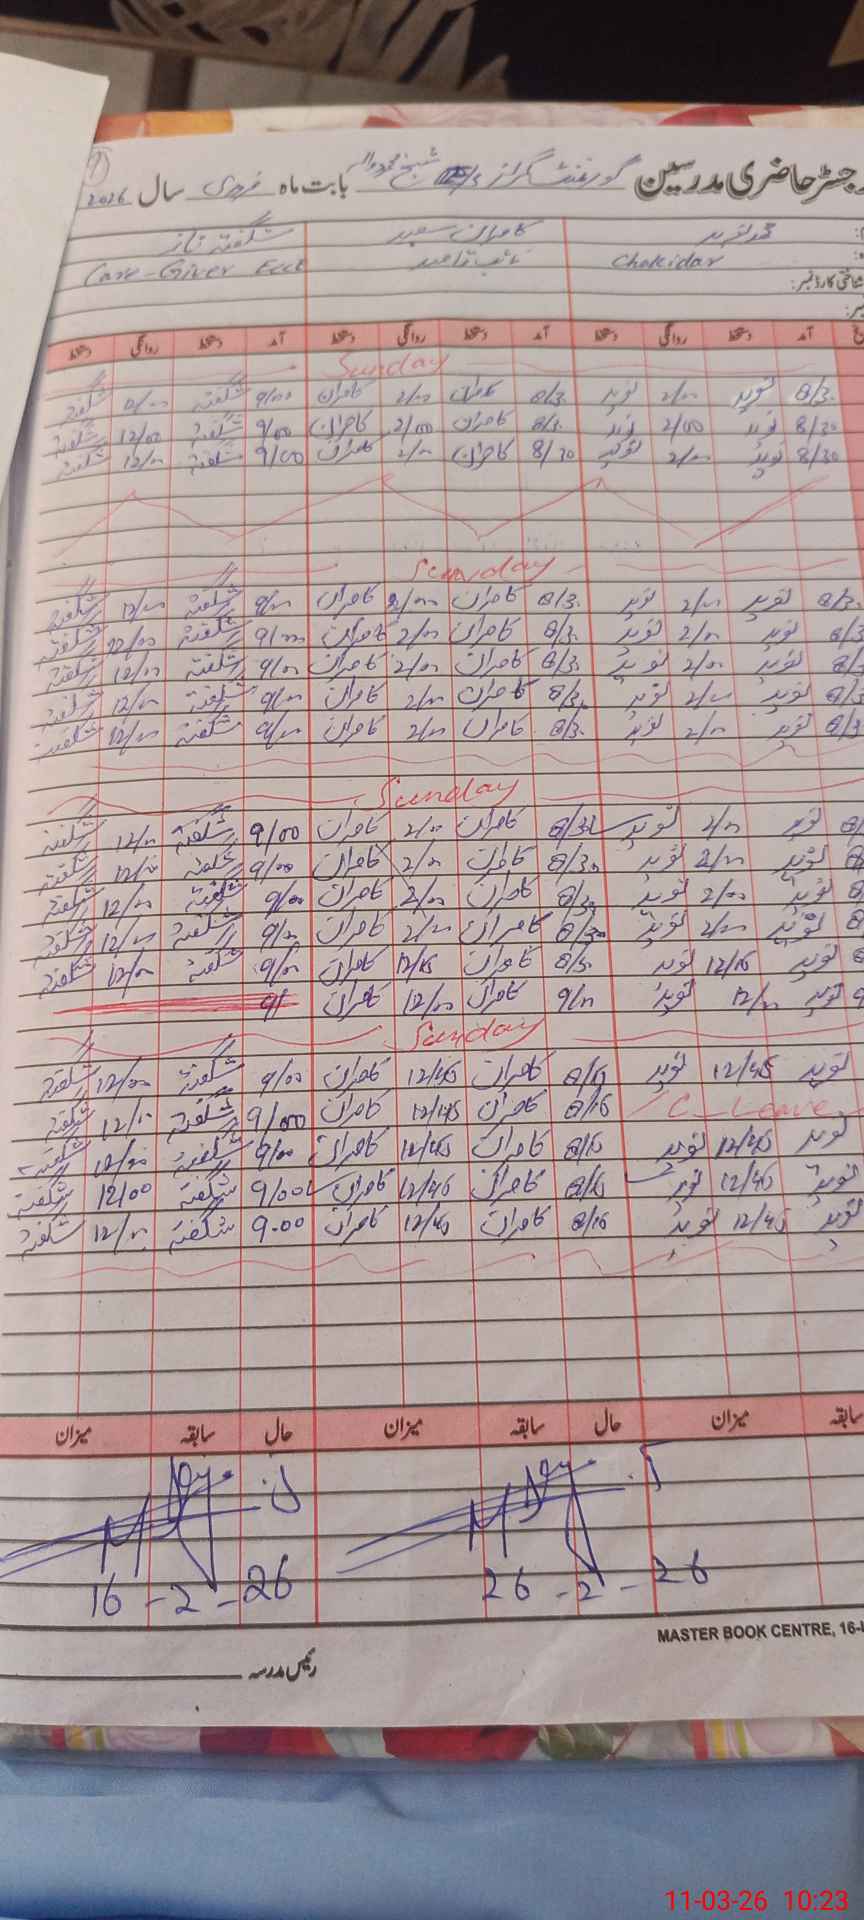 رجسٹر حاضری مدرسین گورنمنٹ گرلز شیخ محمود والہ بابت ماہ فروری سال 2026
محمد نوید کامران سعید شگفتہ ناز
Chokidar نائب قاصد Care-Giver Ecce
شناختی کارڈ نمبر:
آمد دستخط روانگی دستخط آمد دستخط روانگی دستخط آمد دستخط روانگی دستخط
Sunday
8/3. نوید 2/00 نوید 8/3. کامران 2/00 کامران 9/00 شگفتہ 12/00 شگفتہ
8/30 نوید 2/00 نوید 8/3. کامران 2/00 کامران 9/00 شگفتہ 12/00 شگفتہ
8/30 نوید 2/00 نوید 8/30 کامران 2/00 کامران 9/00 شگفتہ 12/00 شگفتہ
Sunday
8/3. نوید 2/00 نوید 8/3. کامران 2/00 کامران 9/00 شگفتہ 12/00 شگفتہ
8/3 نوید 2/00 نوید 8/3. کامران 2/00 کامران 9/00 شگفتہ 12/00 شگفتہ
نوید 2/00 نوید 8/3. کامران 2/00 کامران 9/00 شگفتہ 12/00 شگفتہ
8/3 نوید 2/00 نوید 8/3. کامران 2/00 کامران 9/00 شگفتہ 12/00 شگفتہ
8/3 نوید 2/00 نوید 8/3. کامران 2/00 کامران 9/00 شگفتہ 12/00 شگفتہ
Sunday
نوید 2/00 نوید 8/30 کامران 2/00 کامران 9/00 شگفتہ 12/00 شگفتہ
نوید 2/00 نوید 8/30 کامران 2/00 کامران 9/00 شگفتہ 12/00 شگفتہ
نوید 2/00 نوید 8/30 کامران 2/00 کامران 9/00 شگفتہ 12/00 شگفتہ
نوید 2/00 نوید 8/30 کامران 2/00 کامران 9/00 شگفتہ 12/00 شگفتہ
نوید 12/15 نوید 8/30 کامران 12/15 کامران 9/00 شگفتہ 12/00 شگفتہ
نوید 12/00 نوید 9/00 کامران 12/00 کامران 9/
Sunday
نوید 12/45 نوید 8/15 کامران 12/45 کامران 9/00 شگفتہ 12/00 شگفتہ
C-Leave 8/15 کامران 12/45 کامران 9/00 شگفتہ 12/00 شگفتہ
نوید 12/45 نوید 8/15 کامران 12/45 کامران 9/00 شگفتہ 12/00 شگفتہ
نوید 12/45 نوید 8/15 کامران 12/45 کامران 9/00 شگفتہ 12/00 شگفتہ
نوید 12/45 نوید 8/15 کامران 12/45 کامران 9.00 شگفتہ 12/00 شگفتہ
سابقہ میزان حال سابقہ میزان حال سابقہ میزان
26-2-26 16-2-26
MASTER BOOK CENTRE, 16-
رئیس مدرسہ
11-03-26 10:23